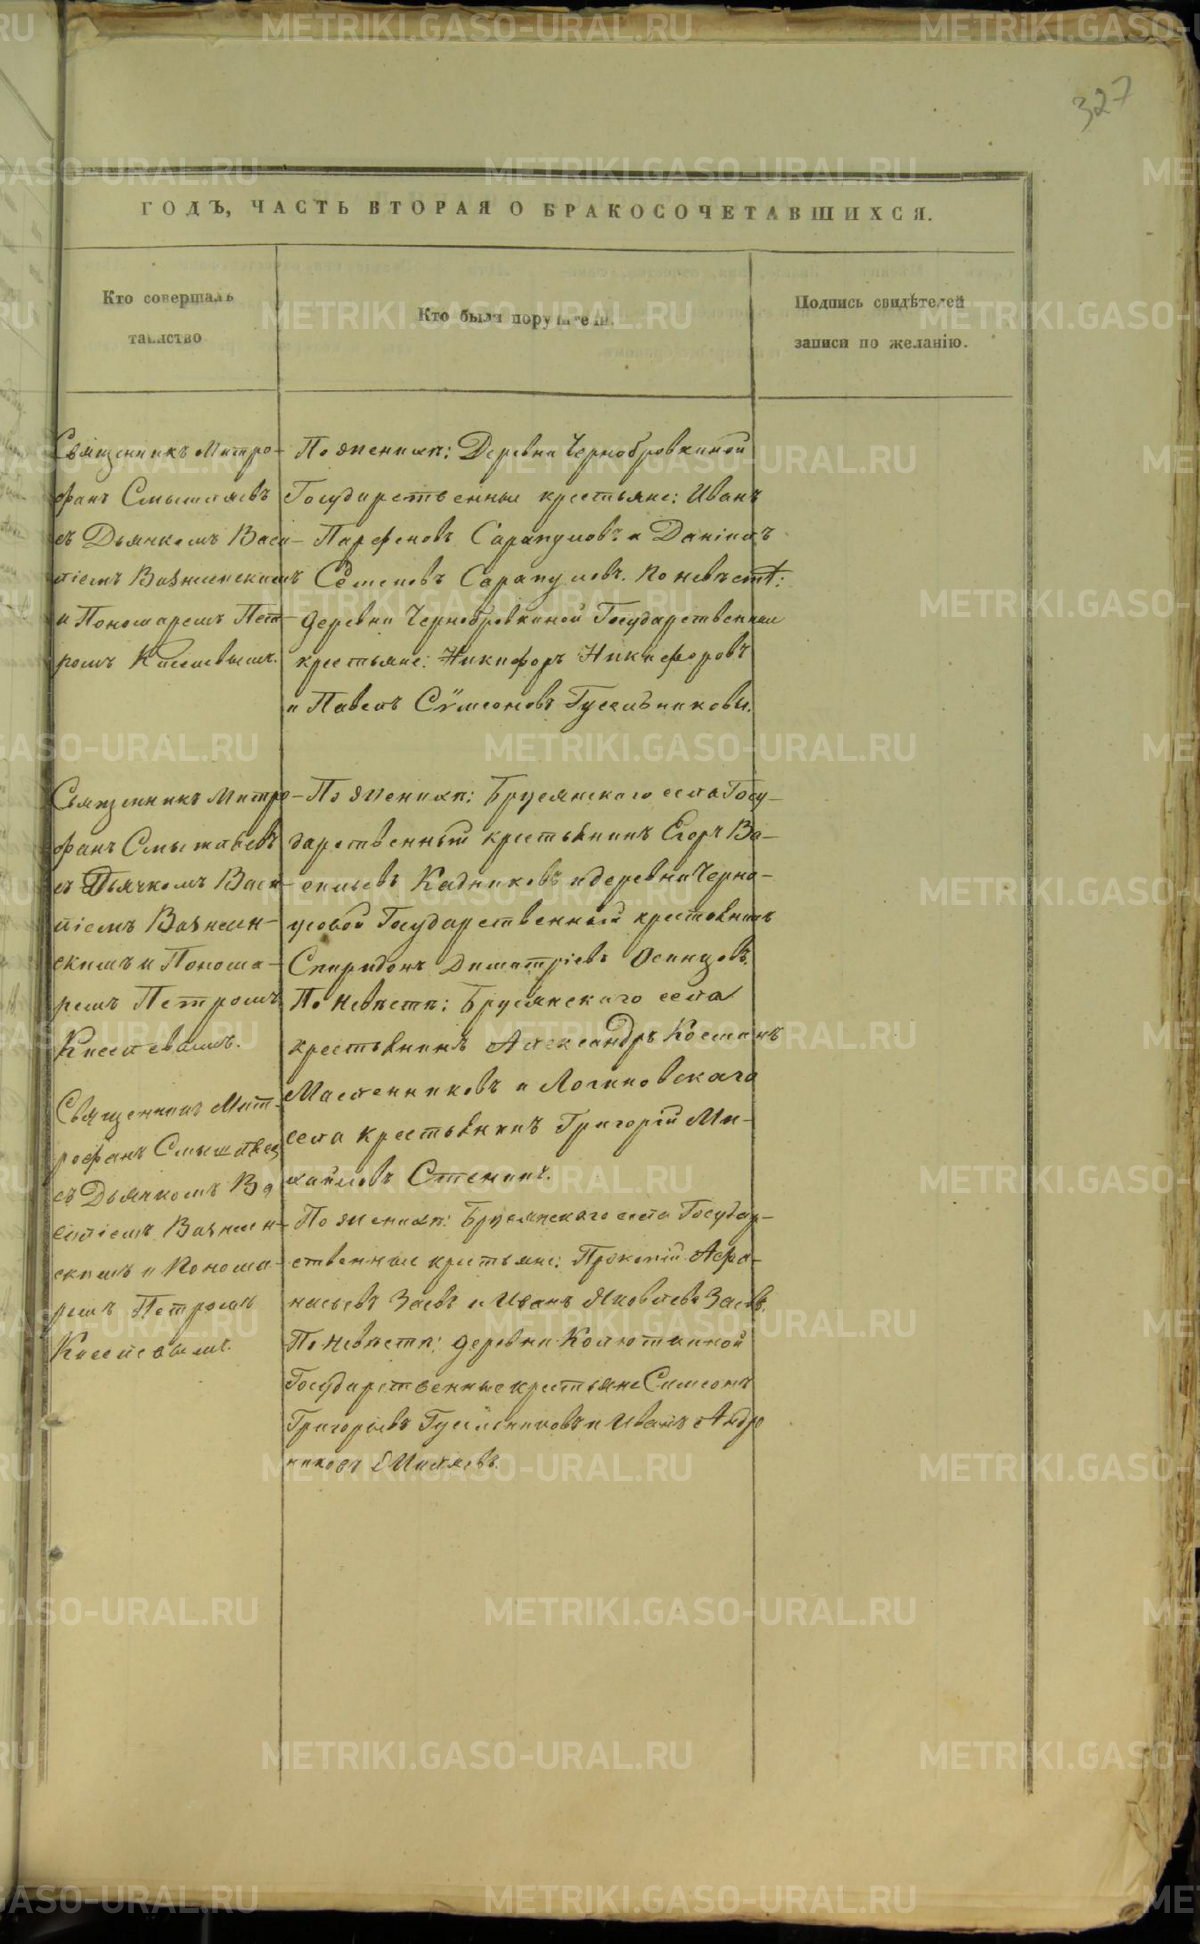 327
ГОДЪ, ЧАСТЬ ВТОРАЯ О БРАКОСОЧЕТАВШИХСЯ.
Кто совершалъ
таинство
Кто были поручители.
Подпись свидѣтелей
записи по желанію.
Священникъ Митро-
фанъ Смышляевъ
съ Дьячкомъ Васи-
ліемъ Вознесенскимъ
и Пономаремъ Пет-
ромъ Киселевымъ.
По женихѣ: Деревни Чернобровкиной
Государственные крестьяне: Иванъ
Парфеновъ Сарапуловъ и Данiилъ
Семеновъ Сарапуловъ. По невѣстѣ:
деревни Чернобровкиной Государственные
крестьяне: Никифоръ Никифоровъ
и Павелъ Сѵмеоновъ Гусельниковы.
Священникъ Митро-
фанъ Смышляевъ
съ Дьячкомъ Васи-
ліемъ Вознесен-
скимъ и Понома-
ремъ Петромъ
Киселевымъ.
По женихѣ: Брусянского села Госу-
дарственный крестьянинъ Егоръ Ва-
сильевъ Кадниковъ и деревни Черно-
усовой Государственный крестьянинъ
Спиридонъ Димитріевъ Осинцовъ.
По невѣстѣ: Брусянского села
крестьянинъ Александръ Косминъ
Масленниковъ и Логиновскаго
села крестьянинъ Григорій Ми-
хайловъ Стенинъ.
Священникъ Мит-
рофанъ Смышляевъ
съ Дьячкомъ Ва
силіемъ Вознесен-
скимъ и Понома-
ремъ Петромъ
Киселевымъ.
По женихѣ: Брусянского села Государ-
ственные крестьяне: Прокопій Афа-
насьевъ Заевъ и Иванъ Яковлевъ Заевъ.
По невѣстѣ: деревни Колюткиной
Государственные крестьяне Симеонъ
Григорьевъ Гусельниковъ и Иванъ Андро
никовъ
METRIKI.GASO-URAL.RU